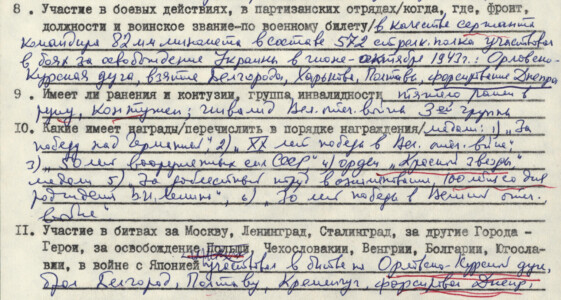 8. Участие в боевых действиях, в партизанских отрядах/когда, где, фронт,
должности и воинское звание-по военному билету/ в качестве сержанта
командира 82 мм миномета в составе 572 стрелк. полка участвовал
в боях за освобождение Украины в июне-октябре 1943 г. Орловско-
Курская дуга, взятие Белгорода, Харькова, Полтавы, форсирование Днепра
9. Имеет ли ранения и контузии, группа инвалидности тяжело ранен в
руку, контужен; инвалид Вел. отеч. войны 3ей группы
10. Какие имеет награды/перечислить в порядке награждения/ медали: 1) „За
победу над Германией" 2) „XX лет победы в Вел. отеч. войне"
3) „50 лет вооруженных сил СССР" 4) орден „Красной звезды"
медали 5) За доблестный труд в ознаменование 100 летия со дня
рождения В.И. Ленина", 6) „30 лет победы в Великой отеч.
войне"
11. Участие в битвах за Москву, Ленинград, Сталинград, за другие Города -
Герои, за освобождение Польши, Чехословакии, Венгрии, Болгарии, Югосла-
вии, в войне с Японией участвовал в битве на Орловско-Курской дуге,
брал Белгород, Полтаву, Кременчуг, форсировал Днепр.